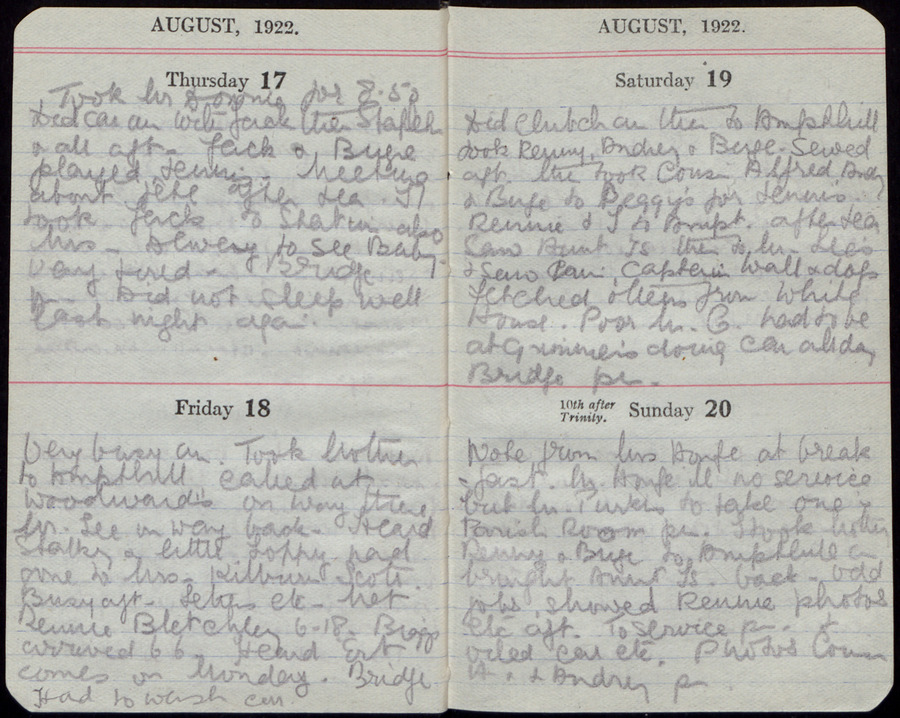 AUGUST, 1922.
Thursday 17
Took Mr for 8.53
Did car am with Jack then
& all aft. Jack & Buge
played tennis. Meeting
about fete after tea. I
took Jack to also
Mrs to see Baby
Very tired - Bridge
pm. Did not sleep well
last night again.
Friday 18
Very busy am. Took Mother
to Ampthill called at
Woodward's on way there
Mr. Lee on way back. Heard
& little Poppy had
gone to Mrs. Kilburn Scott.
Busy aft. etc. Met
Rennie Bletchley 6-18.
arrived 6 6. Heard
comes on Monday. Bridge.
Had to wash car.
AUGUST, 1922.
Saturday 19
Did Church am then to Ampthill
took Renny, Audrey & Buge. Sewed
aft. then took Cousin Alfred Audy
& Buge to Peggy's for tennis.
Rennie & I to Ampt. after tea
Saw Aunt Is then to Mr. Lee's
& saw Captain Wall & dogs
Fetched others from White
House. Poor Mr. G. had to be
at Grimmer's doing car all day
Bridge pm.
10th after Trinity. Sunday 20
Note from Mrs at break
-fast. Mr. ill no service
but Mr. to take one in
Parish Room pm. I took Mother
Renny & Buge to Ampthill am
brought Aunt Is. back - odd
jobs, showed Rennie photos
etc aft. To service pm. &
oiled car etc. Photos Cousin
A. & Audrey pm